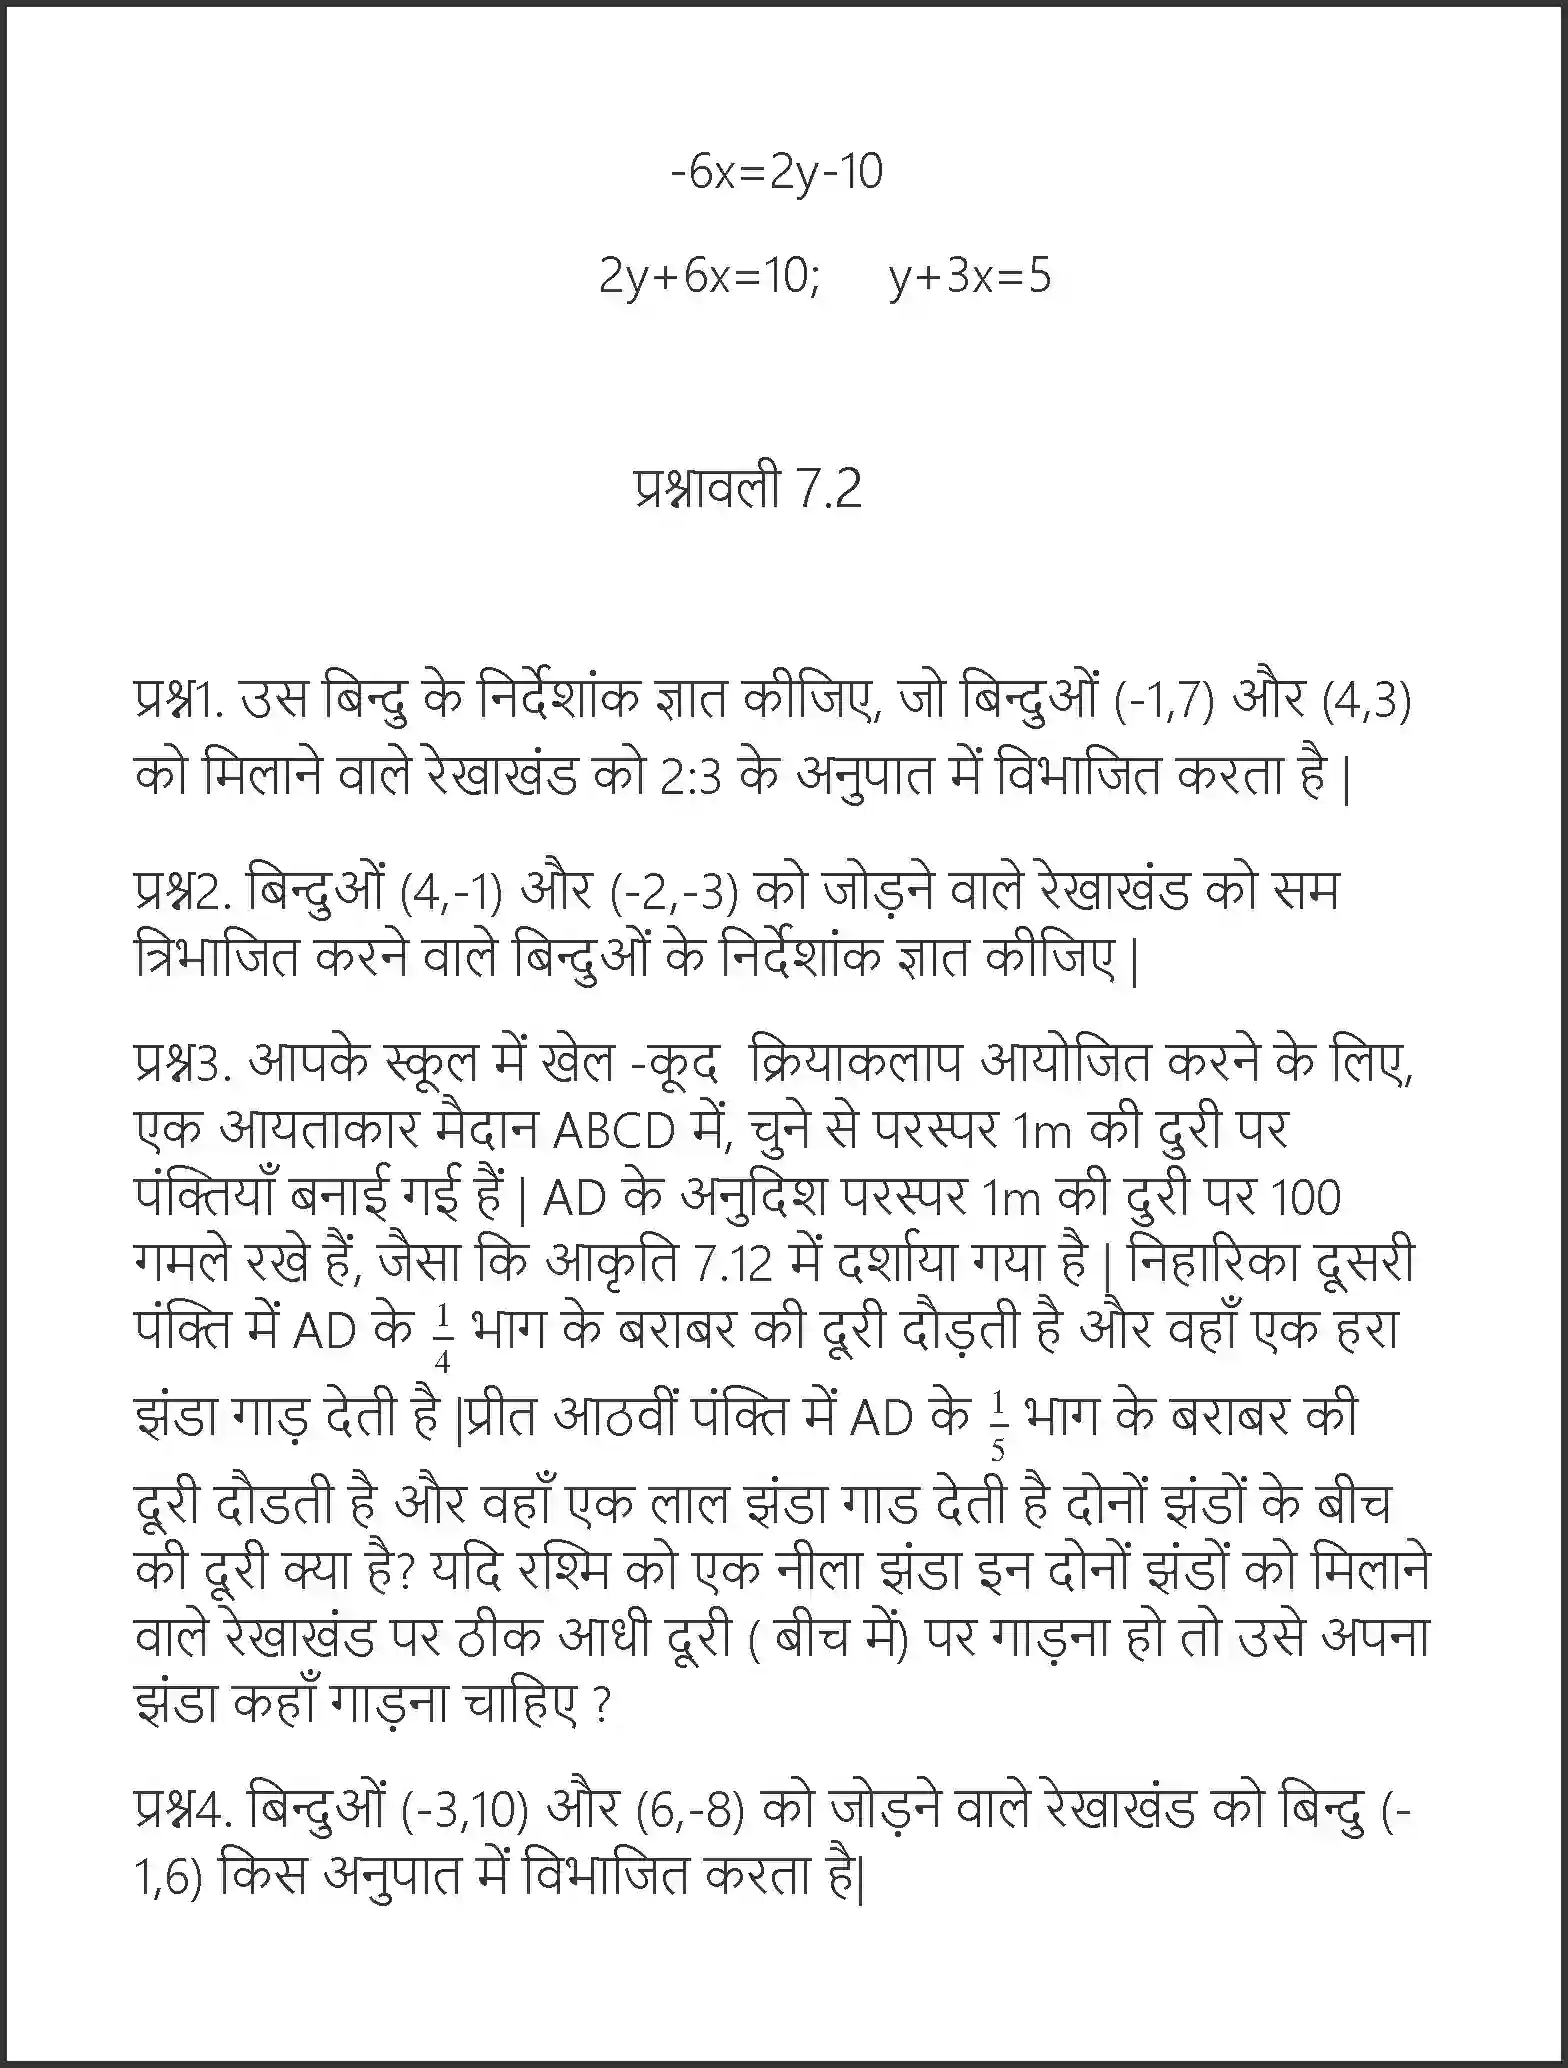 -6x=2y-10
2y+6x=10; y+3x=5
प्रश्नावली 7.2
प्रश्न1. उस बिन्दु के निर्देशांक ज्ञात कीजिए, जो बिन्दुओं (-1,7) और (4,3)
को मिलाने वाले रेखाखंड को 2:3 के अनुपात में विभाजित करता है |
प्रश्न2. बिन्दुओं (4,-1) और (-2,-3) को जोड़ने वाले रेखाखंड को सम
त्रिभाजित करने वाले बिन्दुओं के निर्देशांक ज्ञात कीजिए |
प्रश्न3. आपके स्कूल में खेल -कूद क्रियाकलाप आयोजित करने के लिए,
एक आयताकार मैदान ABCD में, चुने से परस्पर 1m की दुरी पर
पंक्तियाँ बनाई गई हैं | AD के अनुदिश परस्पर 1m की दुरी पर 100
गमले रखे हैं, जैसा कि आकृति 7.12 में दर्शाया गया है | निहारिका दूसरी
पंक्ति में AD के 1/4 भाग के बराबर की दूरी दौड़ती है और वहाँ एक हरा
झंडा गाड़ देती है |प्रीत आठवीं पंक्ति में AD के 1/5 भाग के बराबर की
दूरी दौडती है और वहाँ एक लाल झंडा गाड देती है दोनों झंडों के बीच
की दूरी क्या है? यदि रश्मि को एक नीला झंडा इन दोनों झंडों को मिलाने
वाले रेखाखंड पर ठीक आधी दूरी ( बीच में) पर गाड़ना हो तो उसे अपना
झंडा कहाँ गाड़ना चाहिए ?
प्रश्न4. बिन्दुओं (-3,10) और (6,-8) को जोड़ने वाले रेखाखंड को बिन्दु (-
1,6) किस अनुपात में विभाजित करता है|